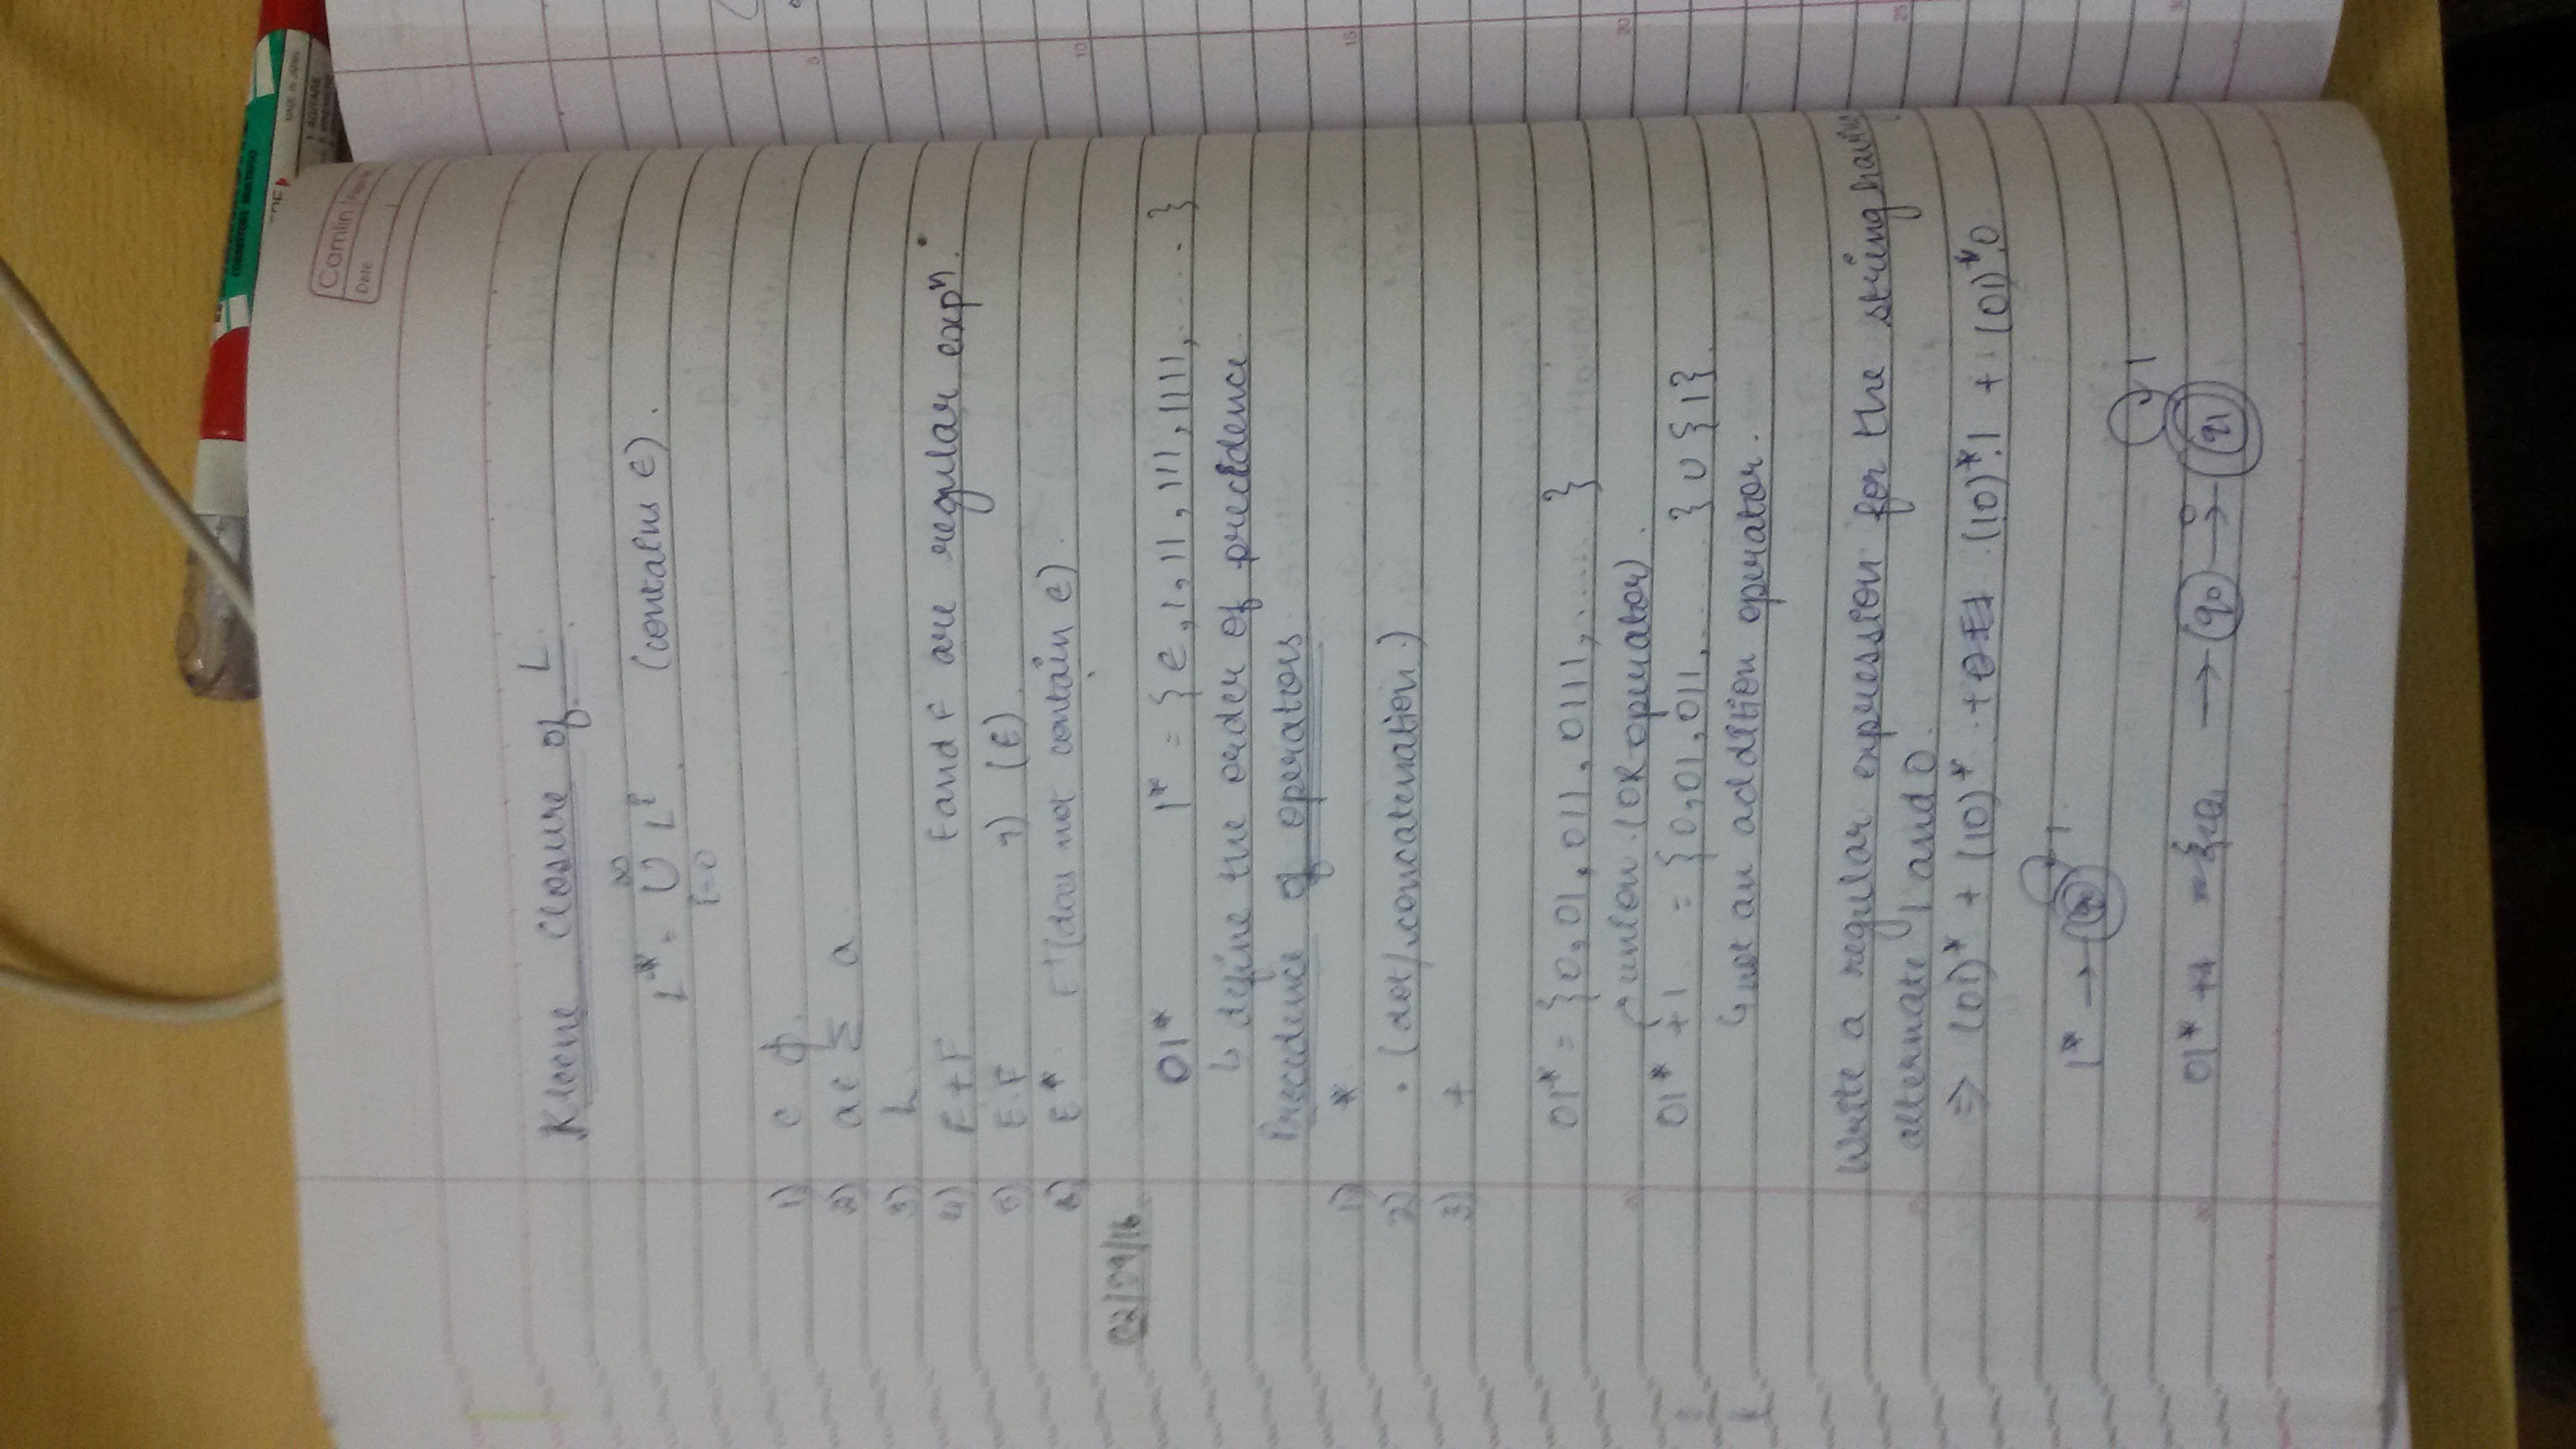 CORRETTORE MULTIUSO
MADE IN JAPAN
1. AGITARE
Camlin
Date
Kleene Closure of L.
∞
L* = ∪ Lⁱ. (contains ϵ).
i=0
1) ϵ ϕ.
2) a ϵ Σ a
3) L.
4) E + F E and F are regular expⁿ.
5) E.F 7) (E).
6) E* E⁺ (does not contain ϵ).
02/09/16
01* 1* = {ϵ, 1, 11, 111, 1111, ..... }
↳ define the order of precedence
Precedence of operators
1) *
2) . (dot/concatenation.)
3) +
01* = {0, 01, 011, 0111, ...... }
union. (OR operator).
01* + 1 = {0, 01, 011, ....... } ∪ {1}.
↳ not an addition operator.
Write a regular expression for the string having
alternate 1 and 0.
⇒ (01)* + (10)* + (10)*.1 + (01)*.0
1
1* → q0
1
0
01* → q0 → q1
5
10
15
20
25
30
20
25